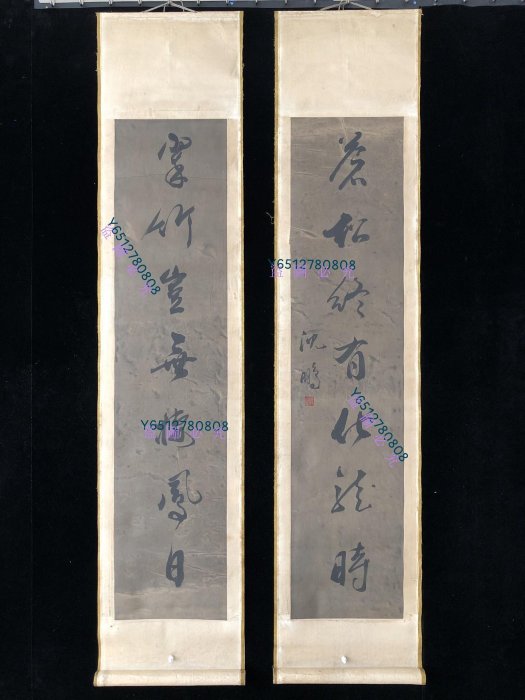 蒼松終有化龍時
沈鵬
翠竹豈無棲鳳日
Y6512780808
Y6512780808
Y6512780808
Y6512780808